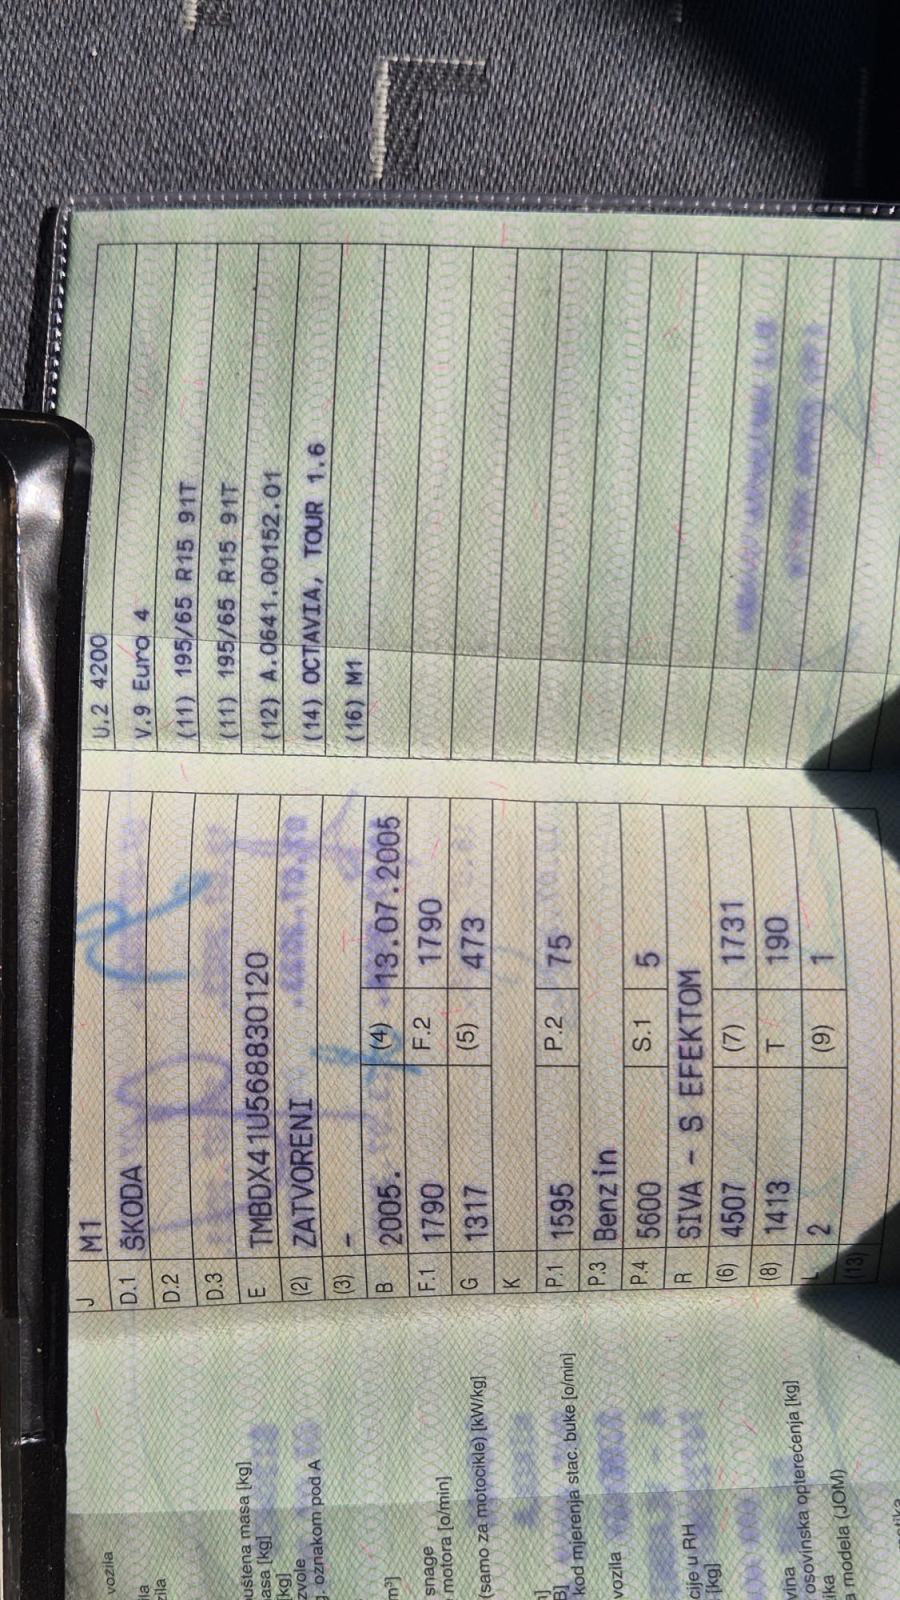 J M1
D.1 ŠKODA
D.2
D.3
E TMBDX41U568830120
(2) ZATVORENI
(3) -
B 2005. (4) 13.07.2005
F.1 1790 F.2 1790
G 1317 (5) 473
K
P.1 1595 P.2 75
P.3 Benzin
P.4 5600 S.1 5
R SIVA - S EFEKTOM
(6) 4507 (7) 1731
(8) 1413 T 190
L 2 (9) 1
(13)
U.2 4200
V.9 Euro 4
(11) 195/65 R15 91T
(11) 195/65 R15 91T
(12) A.0641.00152.01
(14) OCTAVIA, TOUR 1.6
(16) M1
vozila
masa [kg]
[kg]
oznakom pod A
snage
motora [o/min]
(samo za motocikle) [kW/kg]
kod mjerenja stac. buke [o/min]
vozila
u RH
[kg]
osovinska opterećenja [kg]
modela (JOM)